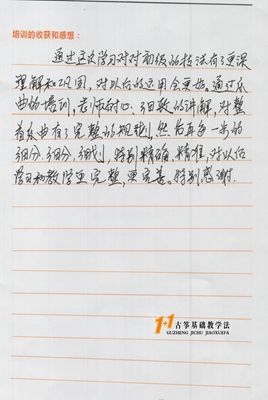 培训的收获和感想：
通过这次学习对对初级的技法有了更深
理解和巩固，对以后的运用会更好。通过乐
曲的培训，老师耐心、细致的讲解，对整
首乐曲有了完整的规划，然后再每一步的
细分，细分，细划，特别精确，精准，对以后
学习和教学更完整，更完善。特别感谢.
1+1 古筝基础教学法
GUZHENG JICHU JIAOXUEFA